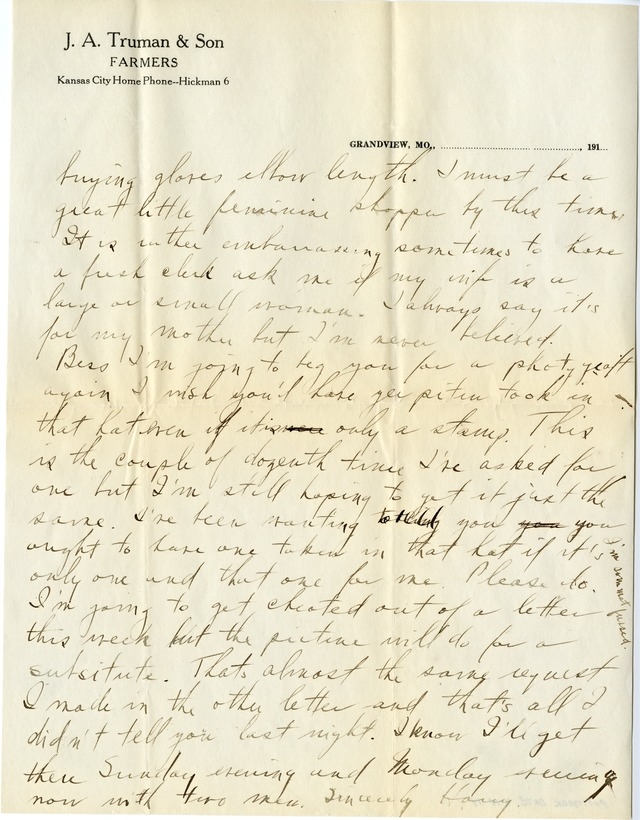 J. A. Truman & Son
FARMERS
Kansas City Home Phone--Hickman 6
GRANDVIEW, MO., ................................................, 191...
buying gloves elbow length. I must be a
great little feminine shopper by this time.
It is rather embarrassing sometimes to have
a fresh clerk ask me if my wife is a
large or small woman. I always say it's
for my mother but I'm never believed.
Bess I'm going to beg you for a photograft
again I wish you'd have yer pitcu took in
that hat even if it is only a stamp. This
is the couple of dozenth time I've asked for
one but I'm still hoping to get it just the
same. I've been wanting to tell you you you
ought to have one taken in that hat if it's
only one and that one for me. Please do.
I'm going to get cheated out of a letter
this week but the picture will do for a
subsitute. Thats almost the same request
I made in the other letter and that's all I
didn't tell you last night. I know I'll get
there Sunday evening and Monday evening
now with two men. Sincerely Harry.
I'm